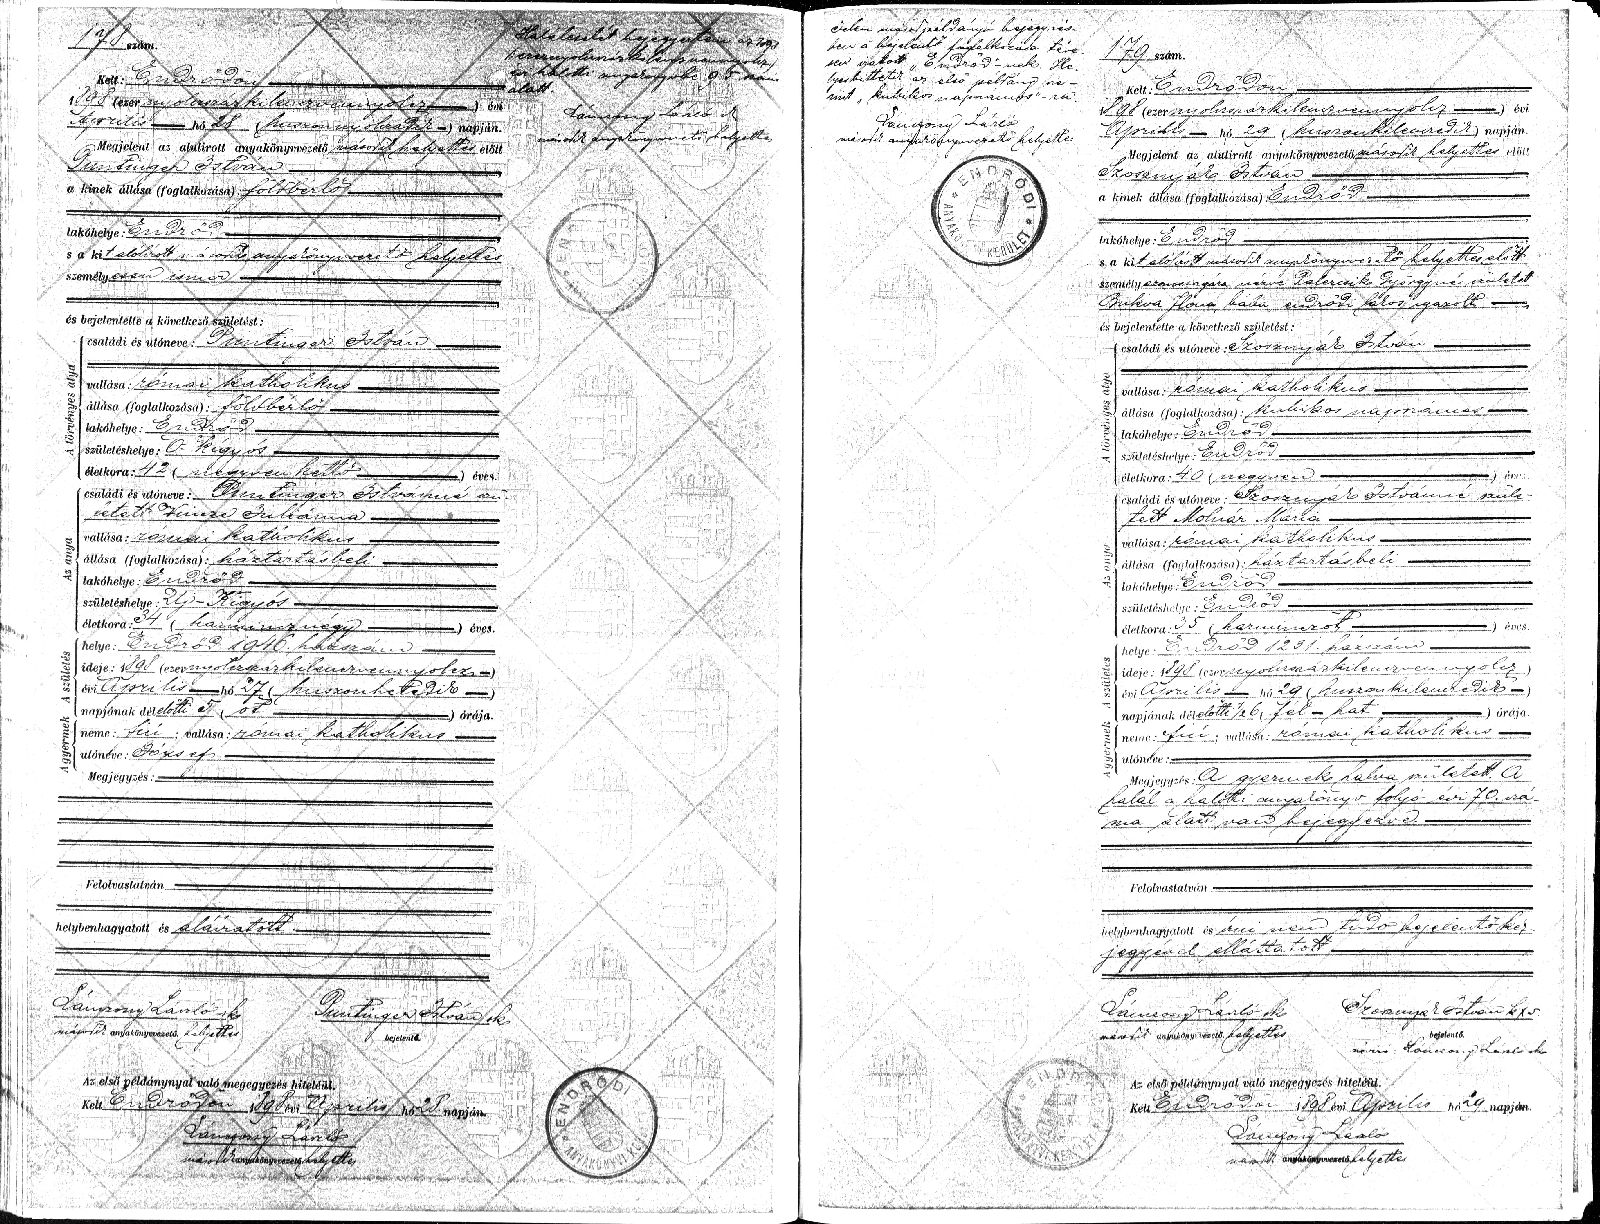 178 szám.
Kelt: Endrődön
1898 (ezer nyolczszázkilenczvennyolcz) évi
Április hó 28 (huszonnyolczadik) napján.
Megjelent az alulirott anyakönyvvezető második helyettes előtt
Puntinger István
a kinek állása (foglalkozása): földbérlő
lakóhelye: Endrőd
s a kit alólirott második anyakönyvvezető helyettes
személyesen ismer
és bejelentette a következő születést:
A törvényes atya
családi és utóneve: Puntinger István
vallása: római katholikus
állása (foglalkozása): földbérlő
lakóhelye: Endrőd
születéshelye: O-Kigyós
életkora: 42 (negyvenkettő) éves.
Az anya
családi és utóneve: Puntinger Istvánné szü-
letett Vincze Juliánna
vallása: római katholikus
állása (foglalkozása): háztartásbeli
lakóhelye: Endrőd
születéshelye: Uj-Kigyós
életkora: 34 (harmincznégy) éves.
A születés
helye: Endrőd 1916. házszám
ideje: 1898 (ezernyolczszázkilenczvennyolcz)
évi Április hó 27 (huszonhetedik)
napjának délelőtti 5 (öt) órája.
A gyermek
neme: fiú; vallása: római katholikus
utóneve: József
Megjegyzés:
Felolvastatván
helybenhagyatott és aláiratott
Lánczony László sk
második anyakönyvvezető helyettes
Puntinger István sk
bejelentő.
Az első példánynyal való megegyezés hiteléül.
Kelt Endrődön 1898 évi Április hó 28 napján.
Lánczony László
második anyakönyvvezető helyettes
Halálesetét bejegyeztem az 1898
ezernyolczszázkilenczvennyolcz
évi halotti anyakönyvbe 95 szám
alatt
Lánczony László sk
második anyakönyvvezető helyettes
ENDRŐDI
ANYAKÖNYVI KERÜLET
jelen másodpéldányú bejegyzés-
ben a bejelentő foglalkozása téve-
sen iratott „Endrőd"-nek. He-
lyesbittetik az első példány sze-
rint „kubikos napszámos"-ra
Lánczony László
második anyakönyvvezető helyettes
ENDRŐDI
ANYAKÖNYVI KERÜLET
179 szám.
Kelt: Endrődön
1898 (ezer nyolczszázkilenczvennyolcz) évi
Április hó 29 (huszonkilenczedik) napján.
Megjelent az alulirott anyakönyvvezető második helyettes előtt
Szosznyák István
a kinek állása (foglalkozása) Endrőd
lakóhelye: Endrőd
s a kit alólirott második anyakönyvvezető helyettes előtt
személyazonosságára nézve Paleresik Györgyné született
Bukva Ilona bába, endrődi lakos igazolt
és bejelentette a következő születést:
A törvényes atya
családi és utóneve: Szosznyák István
vallása: római katholikus
állása (foglalkozása): kubikos napszámos
lakóhelye: Endrőd
születéshelye: Endrőd
életkora: 40 (negyven) éves.
Az anya
családi és utóneve: Szosznyák Istvánné szüle-
tett Molnár Mária
vallása: római katholikus
állása (foglalkozása): háztartásbeli
lakóhelye: Endrőd
születéshelye: Endrőd
életkora: 35 (harminczöt) éves.
A születés
helye: Endrőd 1291. házszám
ideje: 1898 (ezernyolczszázkilenczvennyolcz)
évi Április hó 29 (huszonkilenczedik)
napjának délelőtti 1/2 6 (fél-hat) órája.
A gyermek
neme: fiú; vallása: római katholikus
utóneve:
Megjegyzés: A gyermek halva született. A
halál a halotti anyakönyv folyó évi 70. szá-
ma alatt van bejegyezve.
Felolvastatván
helybenhagyatott és irni nem tudó bejelentő kéz-
jegyével elláttatott
Lánczony László sk
második anyakönyvvezető helyettes
Szosznyák István kxv.
bejelentő.
névíró Lánczony László sk
Az első példánynyal való megegyezés hiteléül.
Kelt Endrődön 1898 évi Április hó 29 napján.
Lánczony László
második anyakönyvvezető helyettes